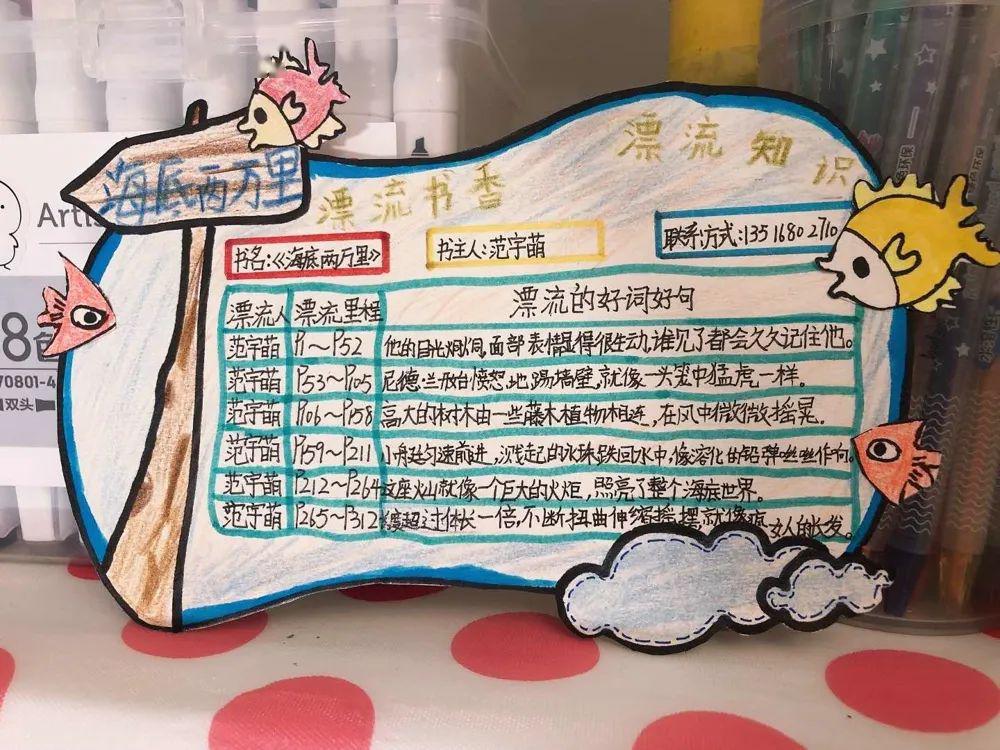 海底两万里
漂流书香
漂流知识
书名:《海底两万里》
书主人:范宇萌
联系方式:13516802710
漂流人 漂流里程 漂流的好词好句
范宇萌 P1~P52 他的目光炯炯,面部表情显得很生动,谁见了都会久久记住他。
范宇萌 P53~P105 尼德·兰般愤怒地踢墙壁,就像一头笼中猛虎一样。
范宇萌 P106~P158 高大的树木由一些藤木植物相连,在风中微微摇晃。
范宇萌 P159~P211 小舟匀速前进,溅起的水珠跌回水中,像溶化的铅弹咝咝作响。
范宇萌 P212~P264 这座火山就像一个巨大的火炬,照亮了整个海底世界。
范宇萌 P265~P312 超过体长一倍,不断扭曲伸缩摇摆,就像疯女人的长发。
Artis
8色
70801-4
双头